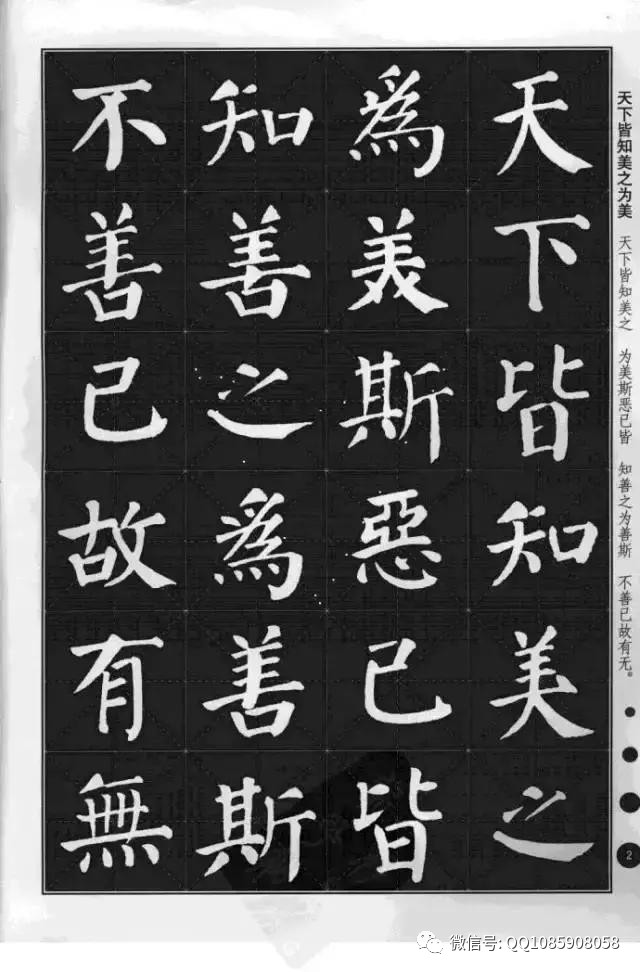 天下皆知美之为美
天下皆知美之 为美斯恶已皆 知善之为善斯 不善已故有无。
2
天下皆知美之
為美斯惡已皆
知善之為善斯
不善已故有無
微信号: QQ1085908058